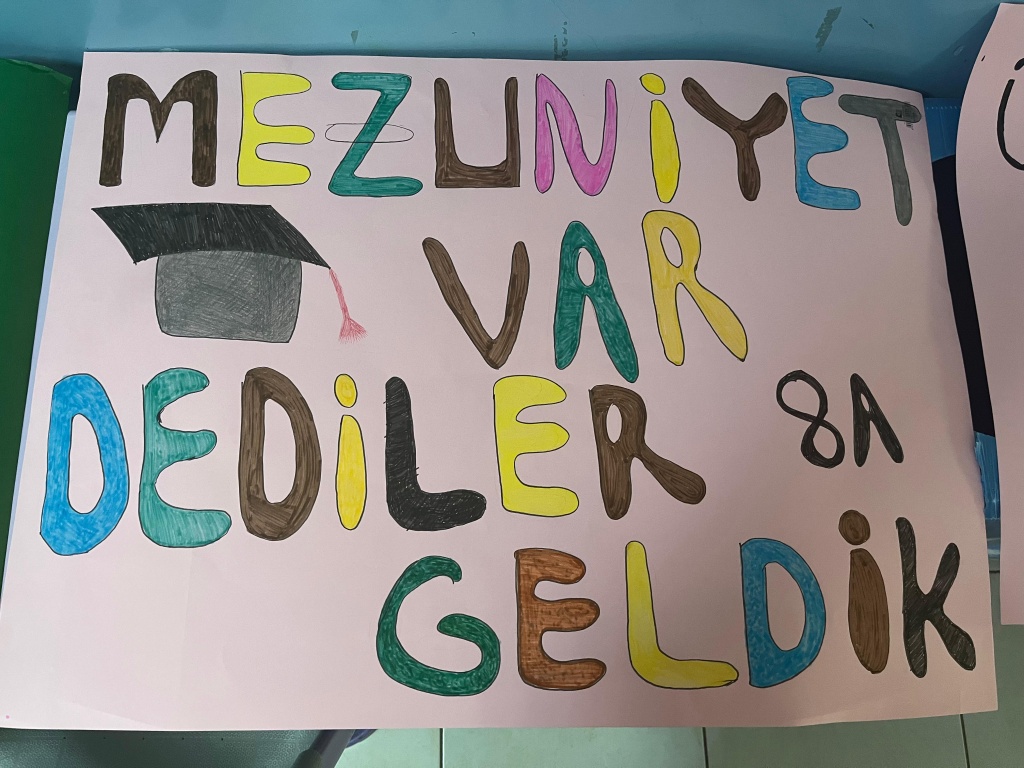 MEZUNiYET
VAR
DEDiLER
8A
GELDiK